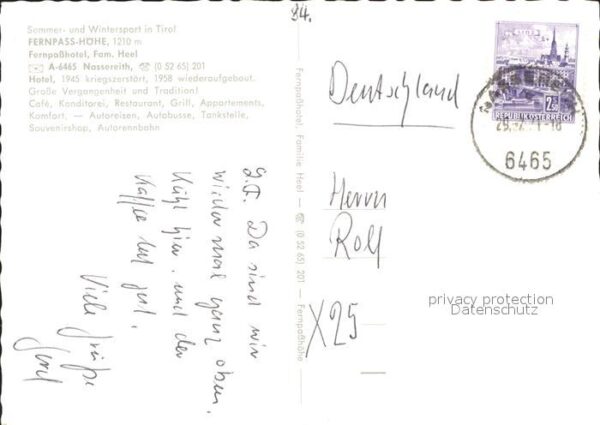 Sommer- und Wintersport in Tirol
FERNPASS-HÖHE, 1210 m
Fernpaßhotel, Fam. Heel
A-6465 Nassereith, ☎ (0 52 65) 201
Hotel, 1945 kriegszerstört, 1958 wiederaufgebaut.
Große Vergangenheit und Tradition!
Café, Konditorei, Restaurant, Grill, Appartements,
Komfort, — Autoreisen, Autobusse, Tankstelle,
Souvenirshop, Autorennbahn
Da sind wir
wieder mal ganz oben.
Kühl hier, und der
Kaffee tut gut.
Viele Grüße
Fernpaßhotel, Familie Heel — ☎ (0 52 65) 201 — Fernpaßhöhe
84.
Deutschland
2.50
REPUBLIK ÖSTERREICH
6465
Herrn
Rolf
X25
privacy protection
Datenschutz